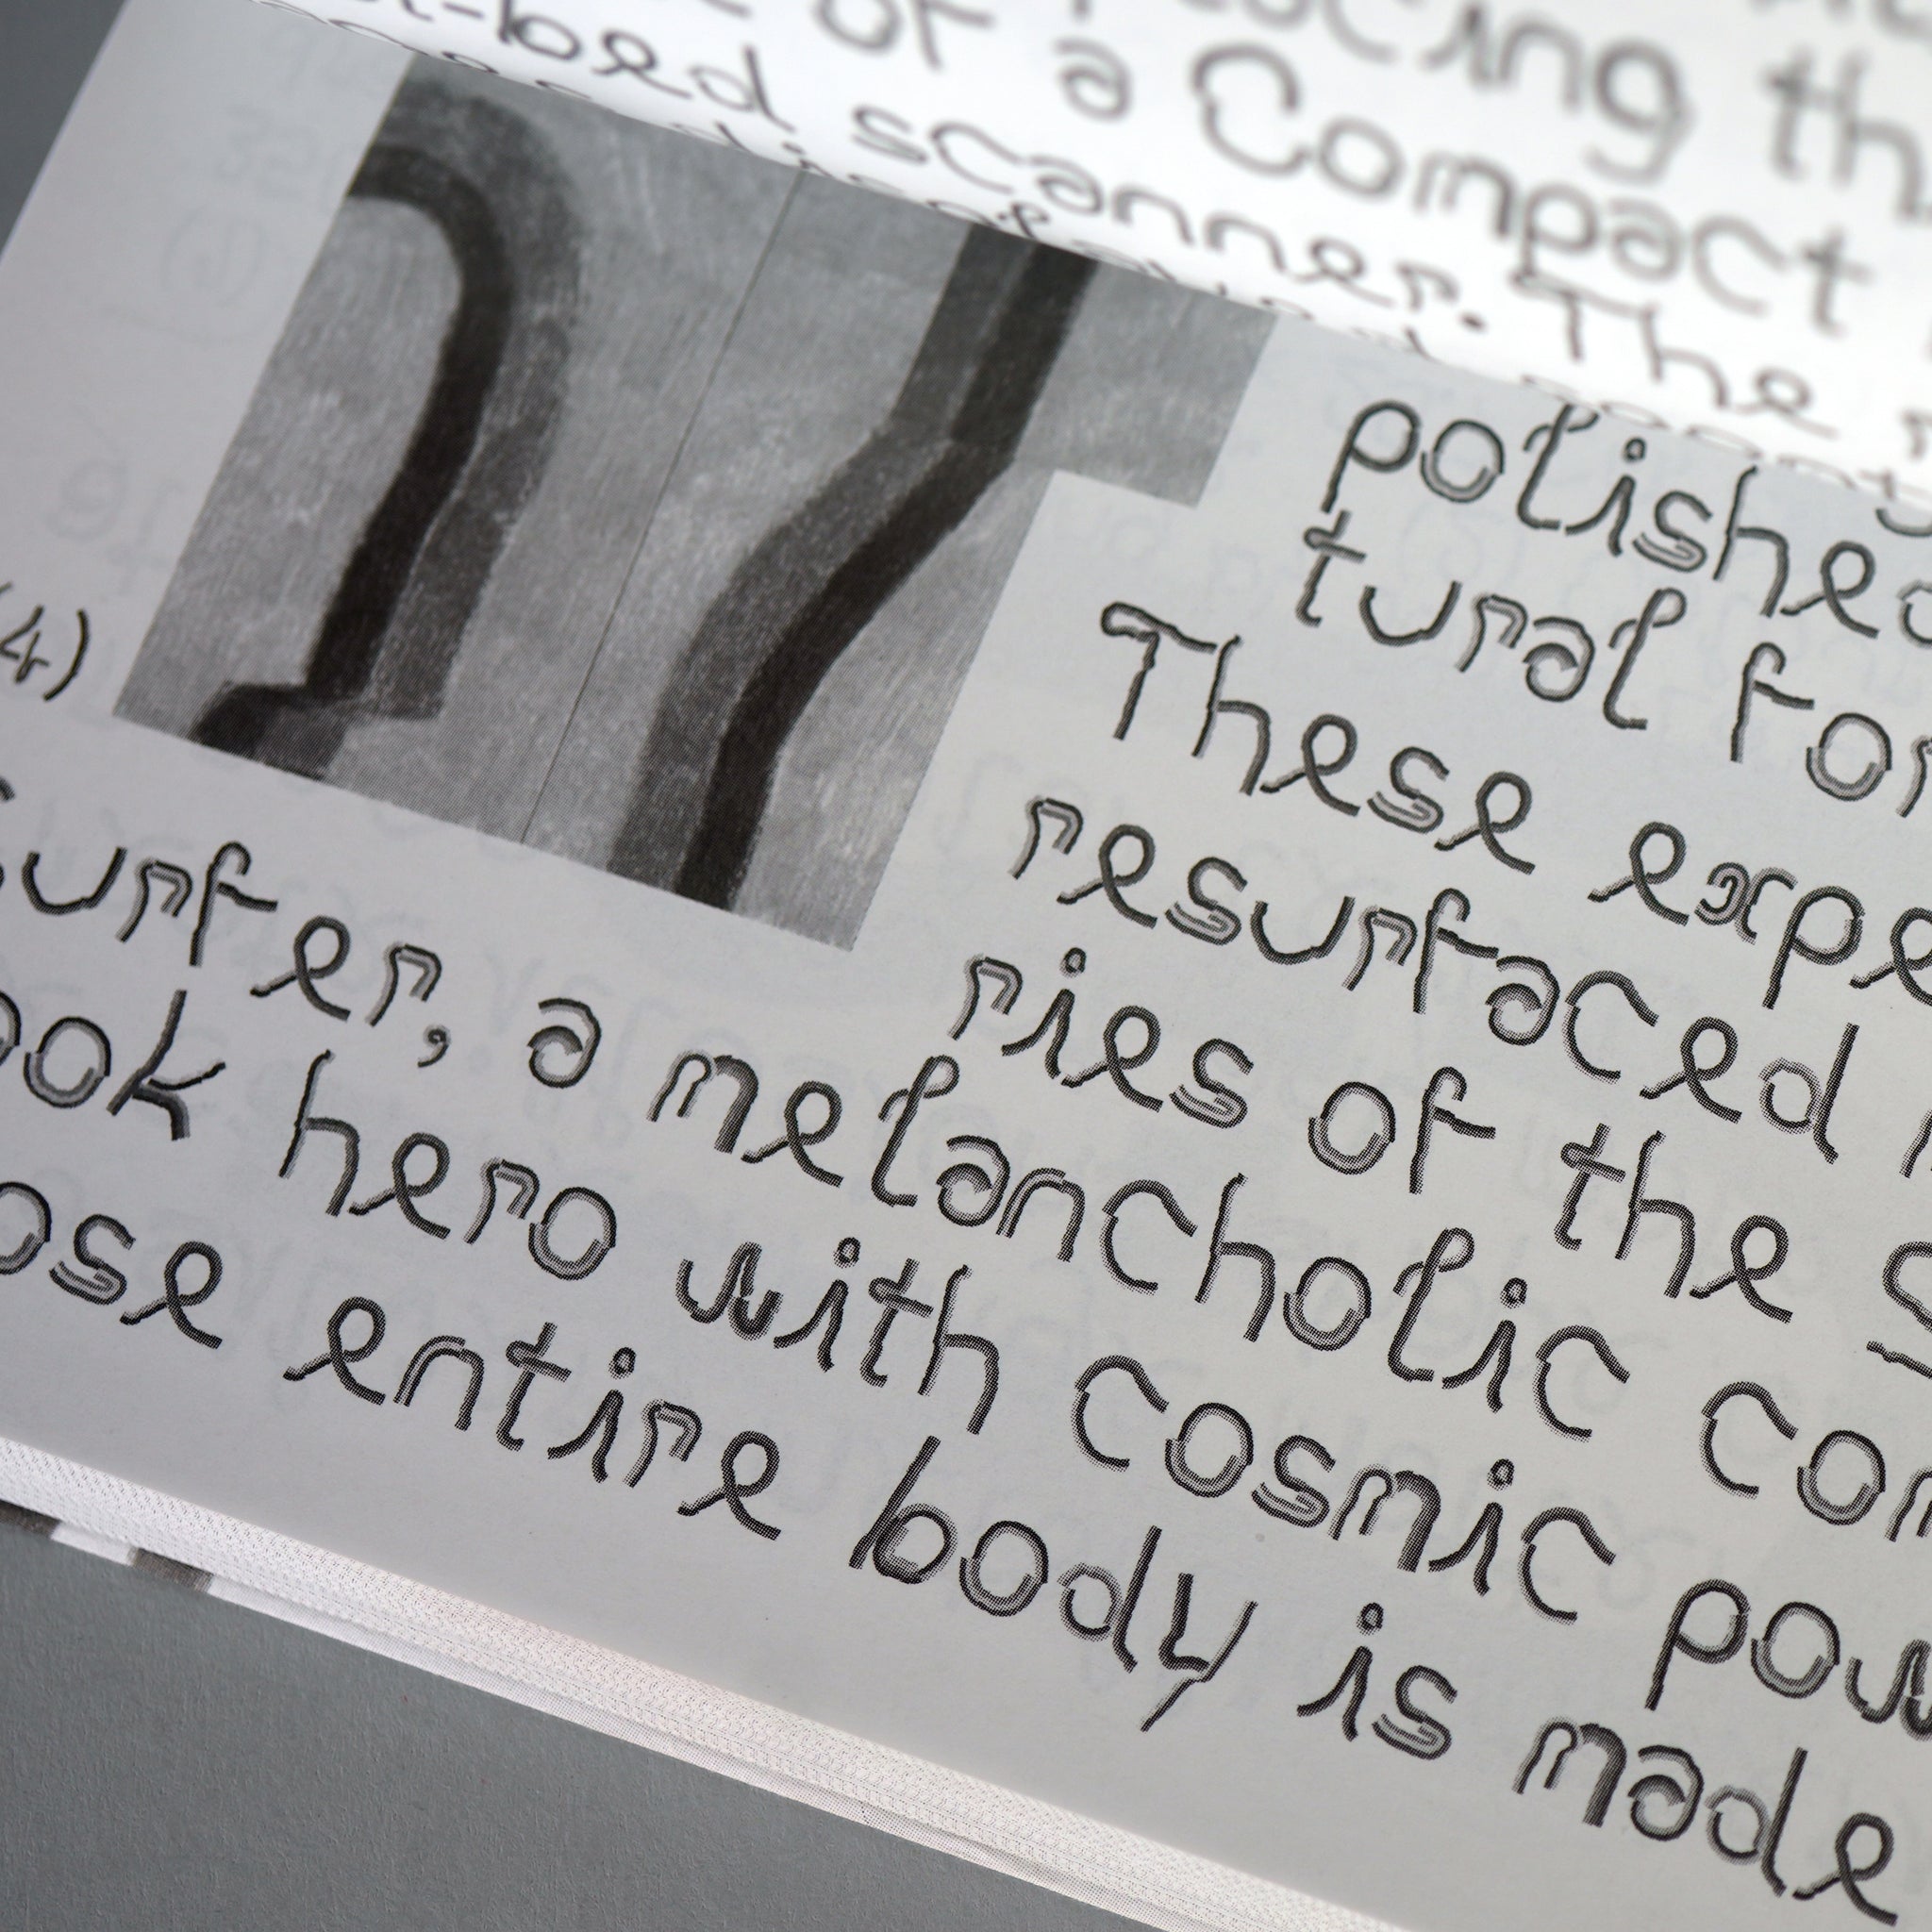 of a Compact
-bed scanner. The
polished
tural for
These expe
resurfaced
ries of the
(4)
surfer, a melancholic com
ook hero with cosmic pow
ose entire body is made